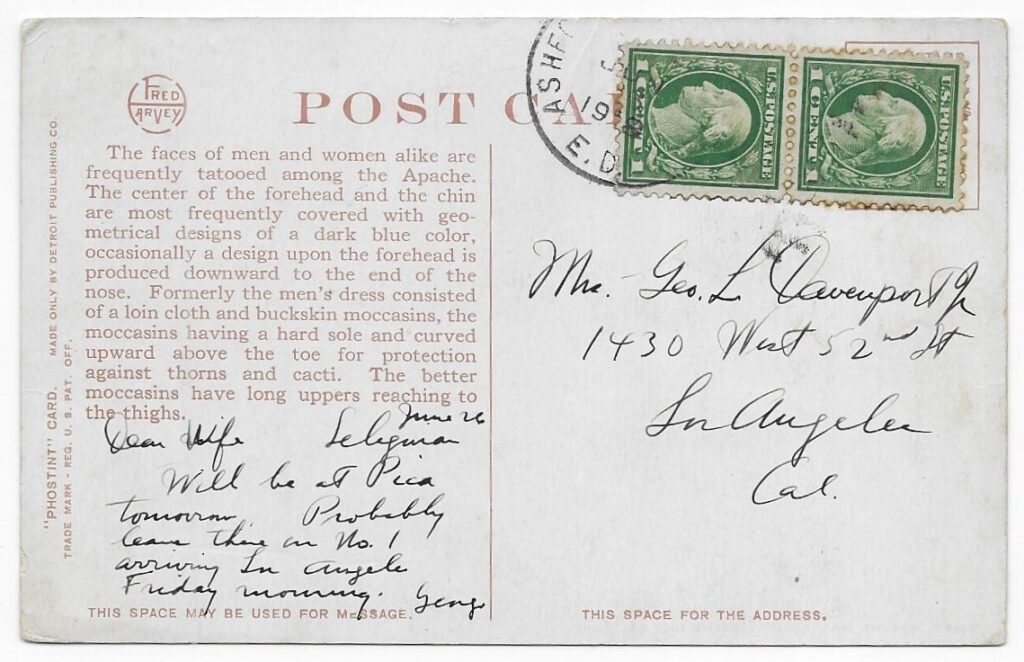 FRED
HARVEY
POST CA
The faces of men and women alike are
frequently tatooed among the Apache.
The center of the forehead and the chin
are most frequently covered with geo-
metrical designs of a dark blue color,
occasionally a design upon the forehead is
produced downward to the end of the
nose. Formerly the men's dress consisted
of a loin cloth and buckskin moccasins, the
moccasins having a hard sole and curved
upward above the toe for protection
against thorns and cacti. The better
moccasins have long uppers reaching to
the thighs.
June 26
Dear Wife Seligman
Will be at Pica
tomorrow. Probably
leave there on No. 1
arriving Los Angeles
Friday morning. George
THIS SPACE MAY BE USED FOR MESSAGE.
"PHOSTINT" CARD. MADE ONLY BY DETROIT PUBLISHING CO.
TRADE MARK - REG. U. S. PAT. OFF.
ASHF
19
E. D.
U.S. POSTAGE
1 CENT 1
U.S. POSTAGE
1 CENT 1
Mrs. Geo. L. Davenport Jr
1430 West 52nd St
Los Angeles
Cal.
THIS SPACE FOR THE ADDRESS.